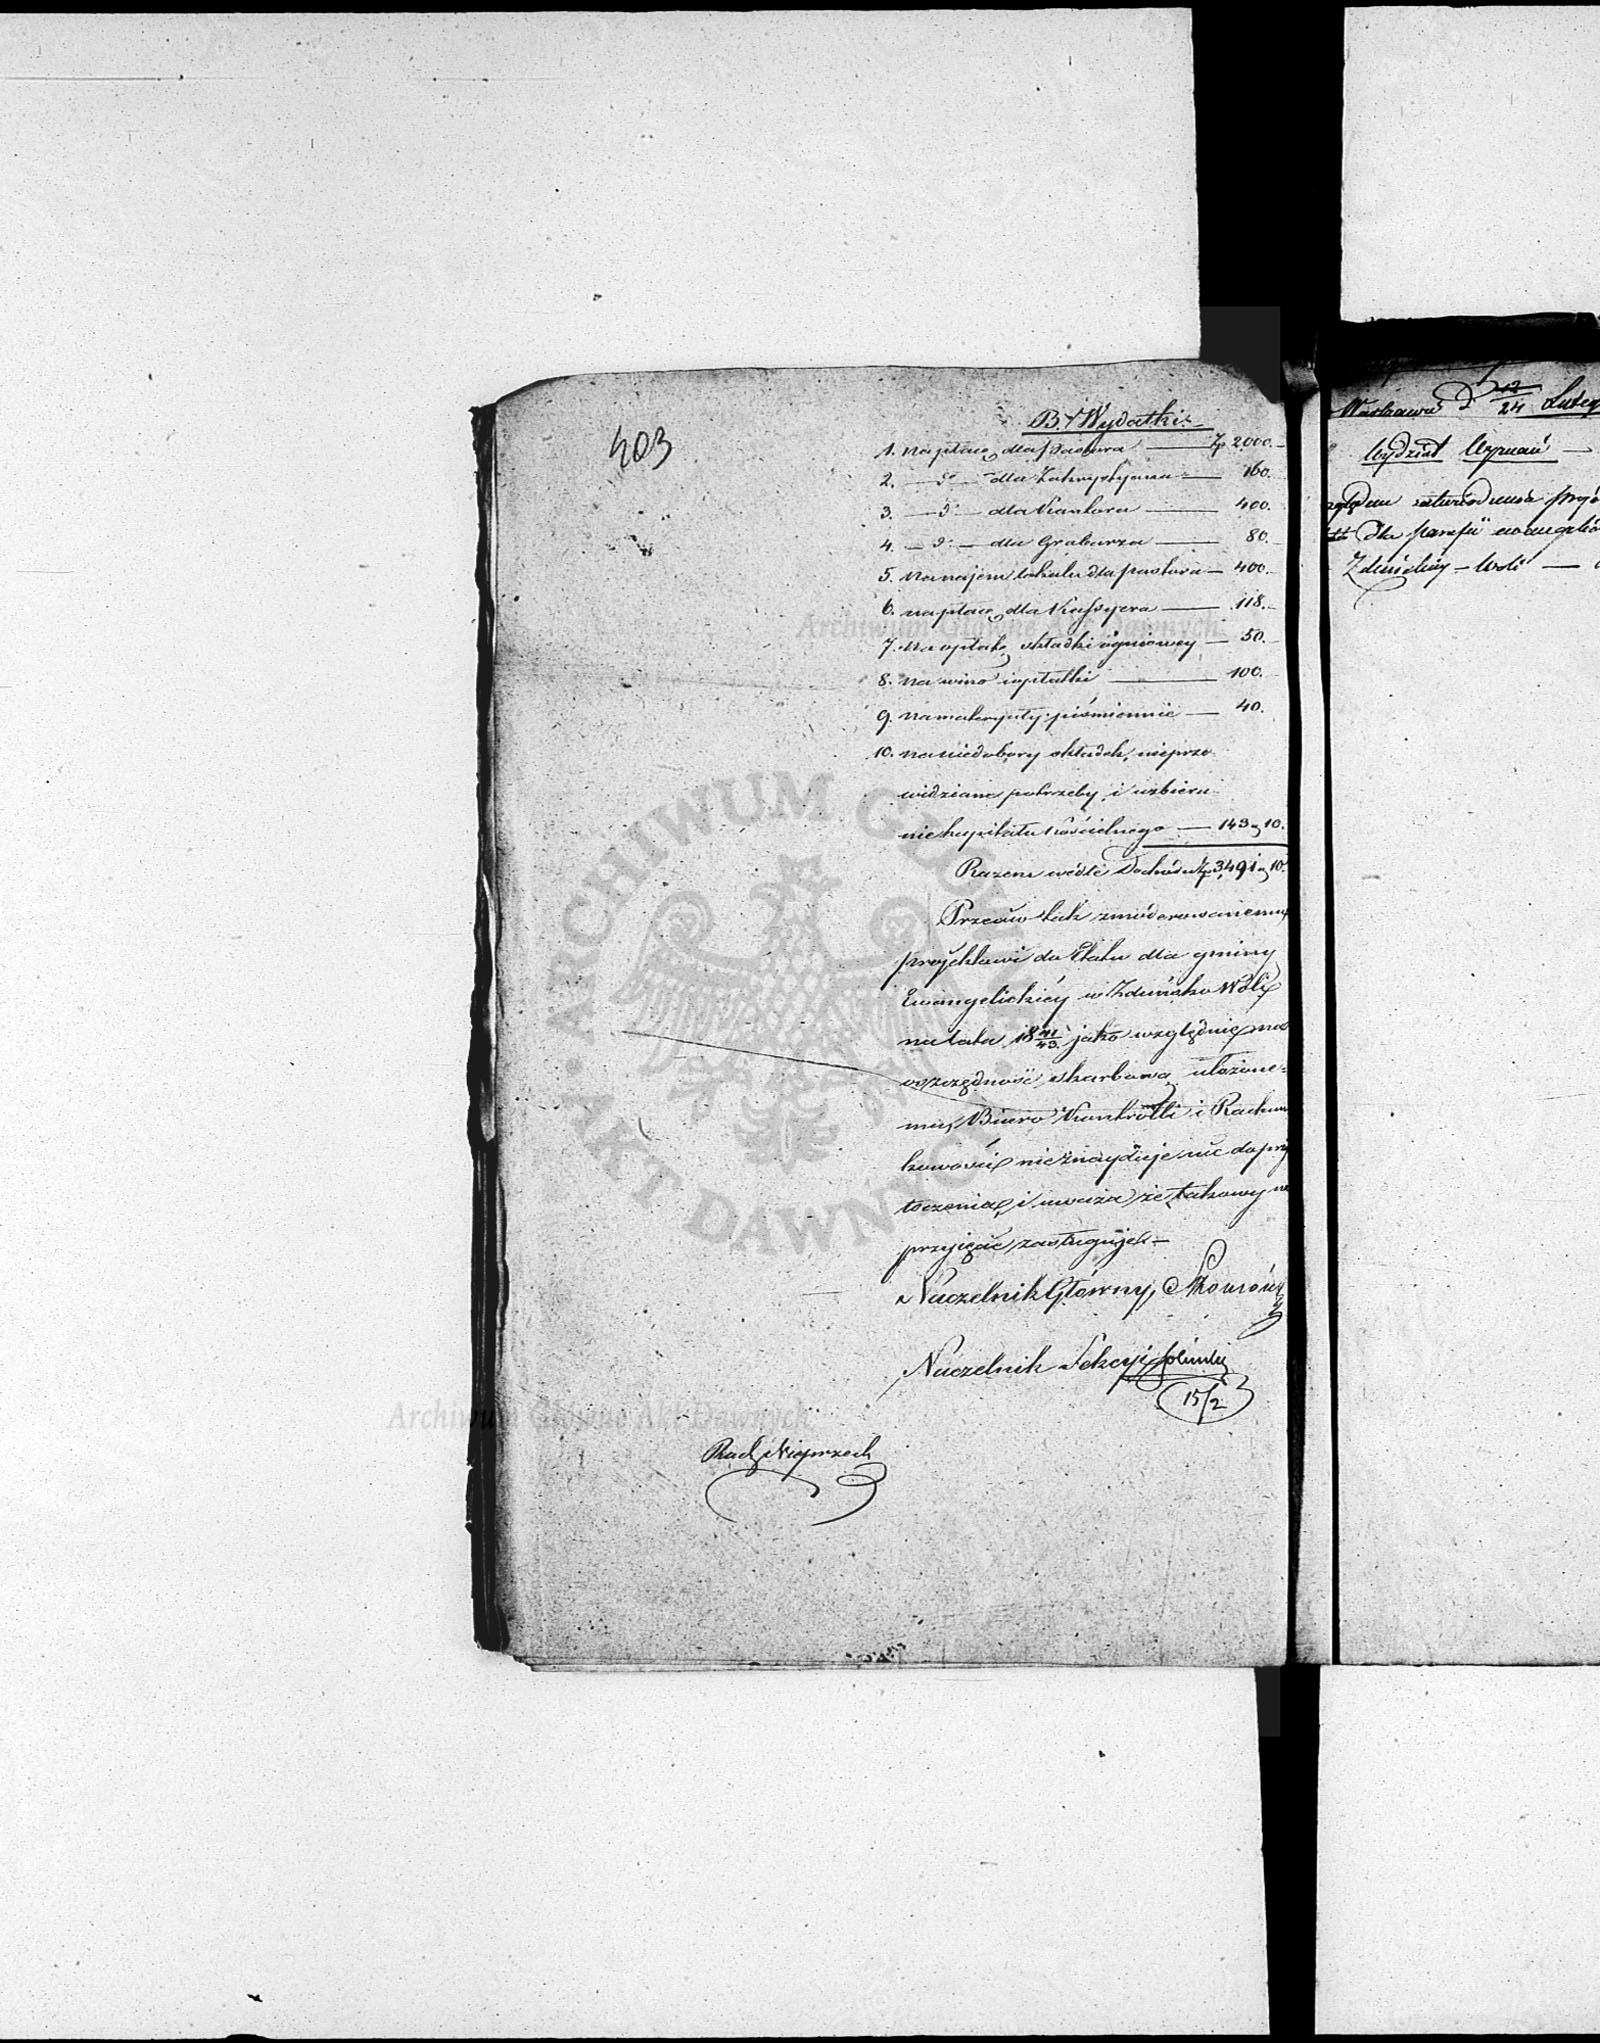 403
B. Wydatki:
1. na płacę dla Pastora — Zp 2000.
2. — d° — dla Zakrystyana — 160.
3. — d° — dla Kantora — 400.
4. — d° — dla Grabarza — 80.
5. na najem lokalu dla pastora — 400.
6. na płacę dla Kassyera — 118.
7. na opłatę składki ogniowey — 50.
8. na wino i opłatki — 100.
9. na materyały piśmienne — 40.
10. na niedobory składek, nieprze
widziane potrzeby i uzbiera
nie kapitału kościelnego — 143 10.
Razem wedle Dochodu Zp 3,491 10.
Przeciw tak zmoderowanemu
projektowi do Etatu dla gminy
Ewangelickiéy w Zduńsko Woli
na lata 18 41/43 jako względnie na
oszczędność skarbową ułożone=
mu, Biuro Kontrolli i Rachun
kowości nieznayduje nic do przy
toczenia, i uważa że takowy na
przyjęcie zasługuje.—
Naczelnik Główny,
Naczelnik Sekcyi
15/2
Warszawa d 12/24 Luteg
Wydział Wyznań —
dla parafii ewangelic
Zduńskiéy-Woli —
Archiwum Główne Akt Dawnych
Archiwum Główne Akt Dawnych
ARCHIWUM GŁÓWNE AKT DAWNYCH